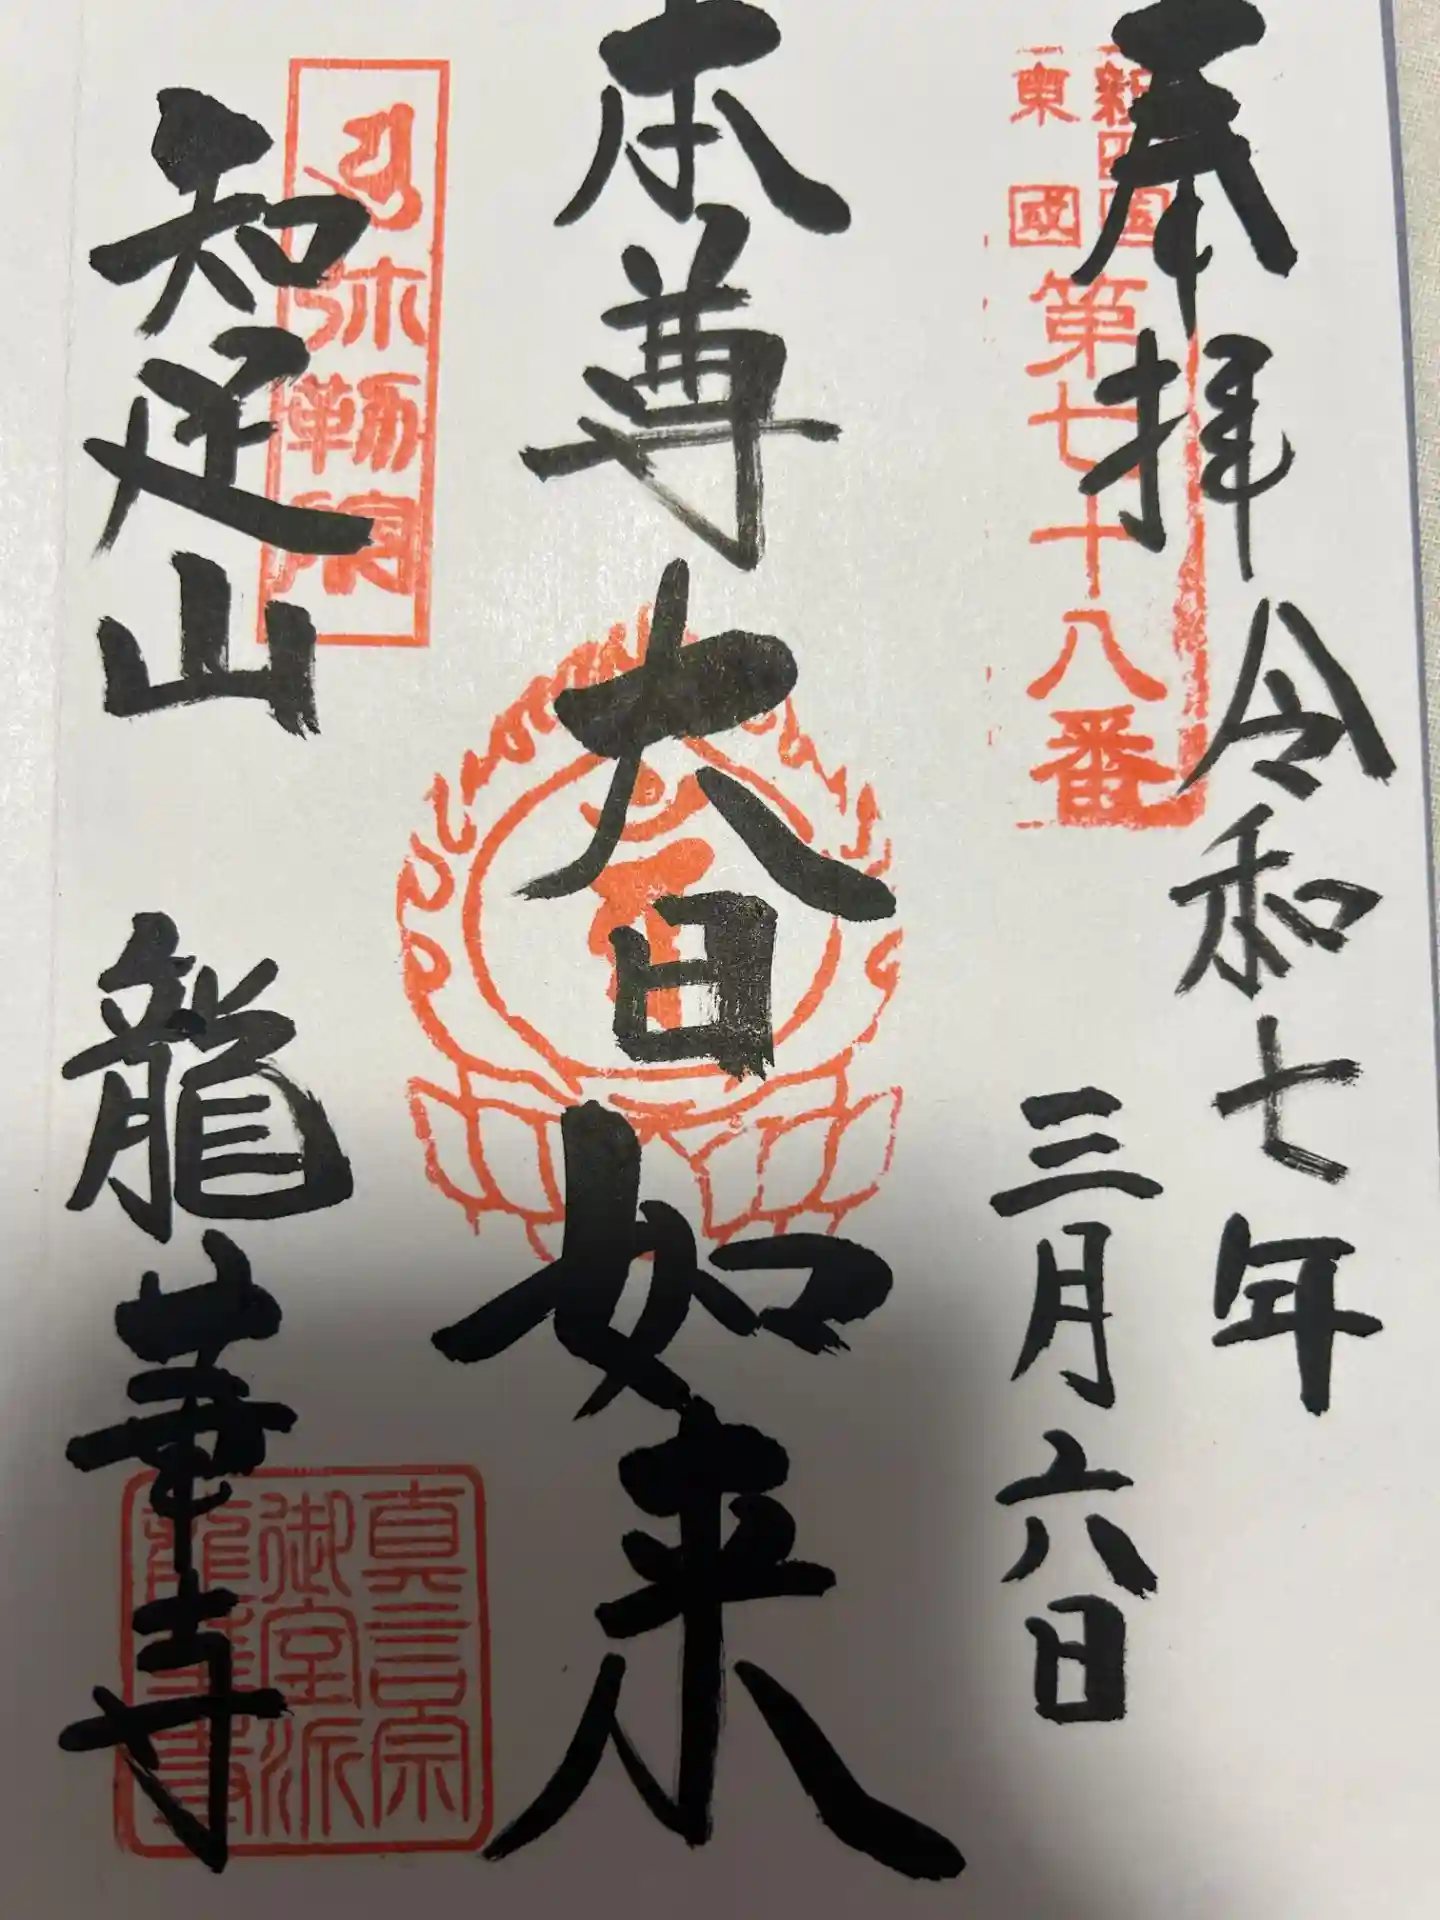 奉拝
令和七年
三月六日
新四国
東國
第七十八番
本尊大日如来
知足山 龍華寺
弥勒院
真言宗
御室派
龍華寺